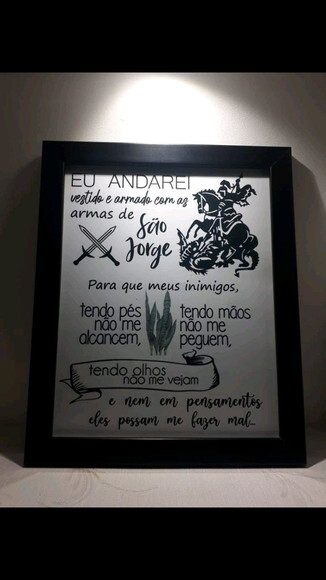 EU ANDAREI
vestido e armado com as
armas de
São
Jorge
Para que meus inimigos,
tendo pés
não me
alcancem,
tendo mãos
não me
peguem,
tendo olhos
não me vejam
e nem em pensamentos
eles possam me fazer mal...